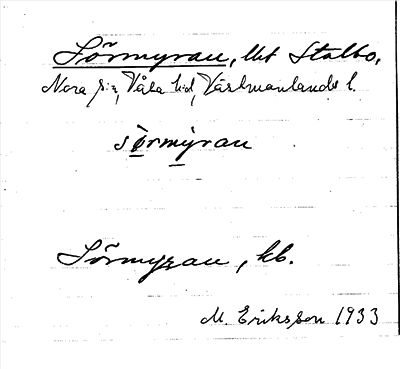 Sörmyran, till Stalbo,
Nora sn, Våla hd, Västmanlands l.
sörmýran
Sörmyran, kb.
M. Eriksson 1933